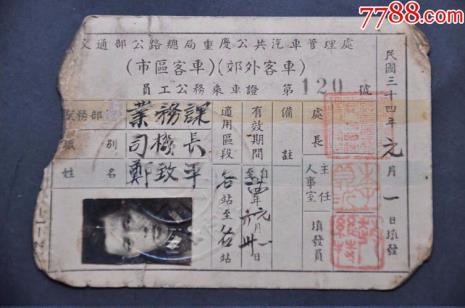 7788.com
交通部公路總局重慶公共汽車管理處
(市區客車)(郊外客車)
員工公務乘車證 第120號
服務部 業務課
職別 司機長
姓名 鄭致平
適用區段
各站至各站
有效期間
備註
處長
人事室主任
填發員
民國三十四年元月一日填發
7788.com